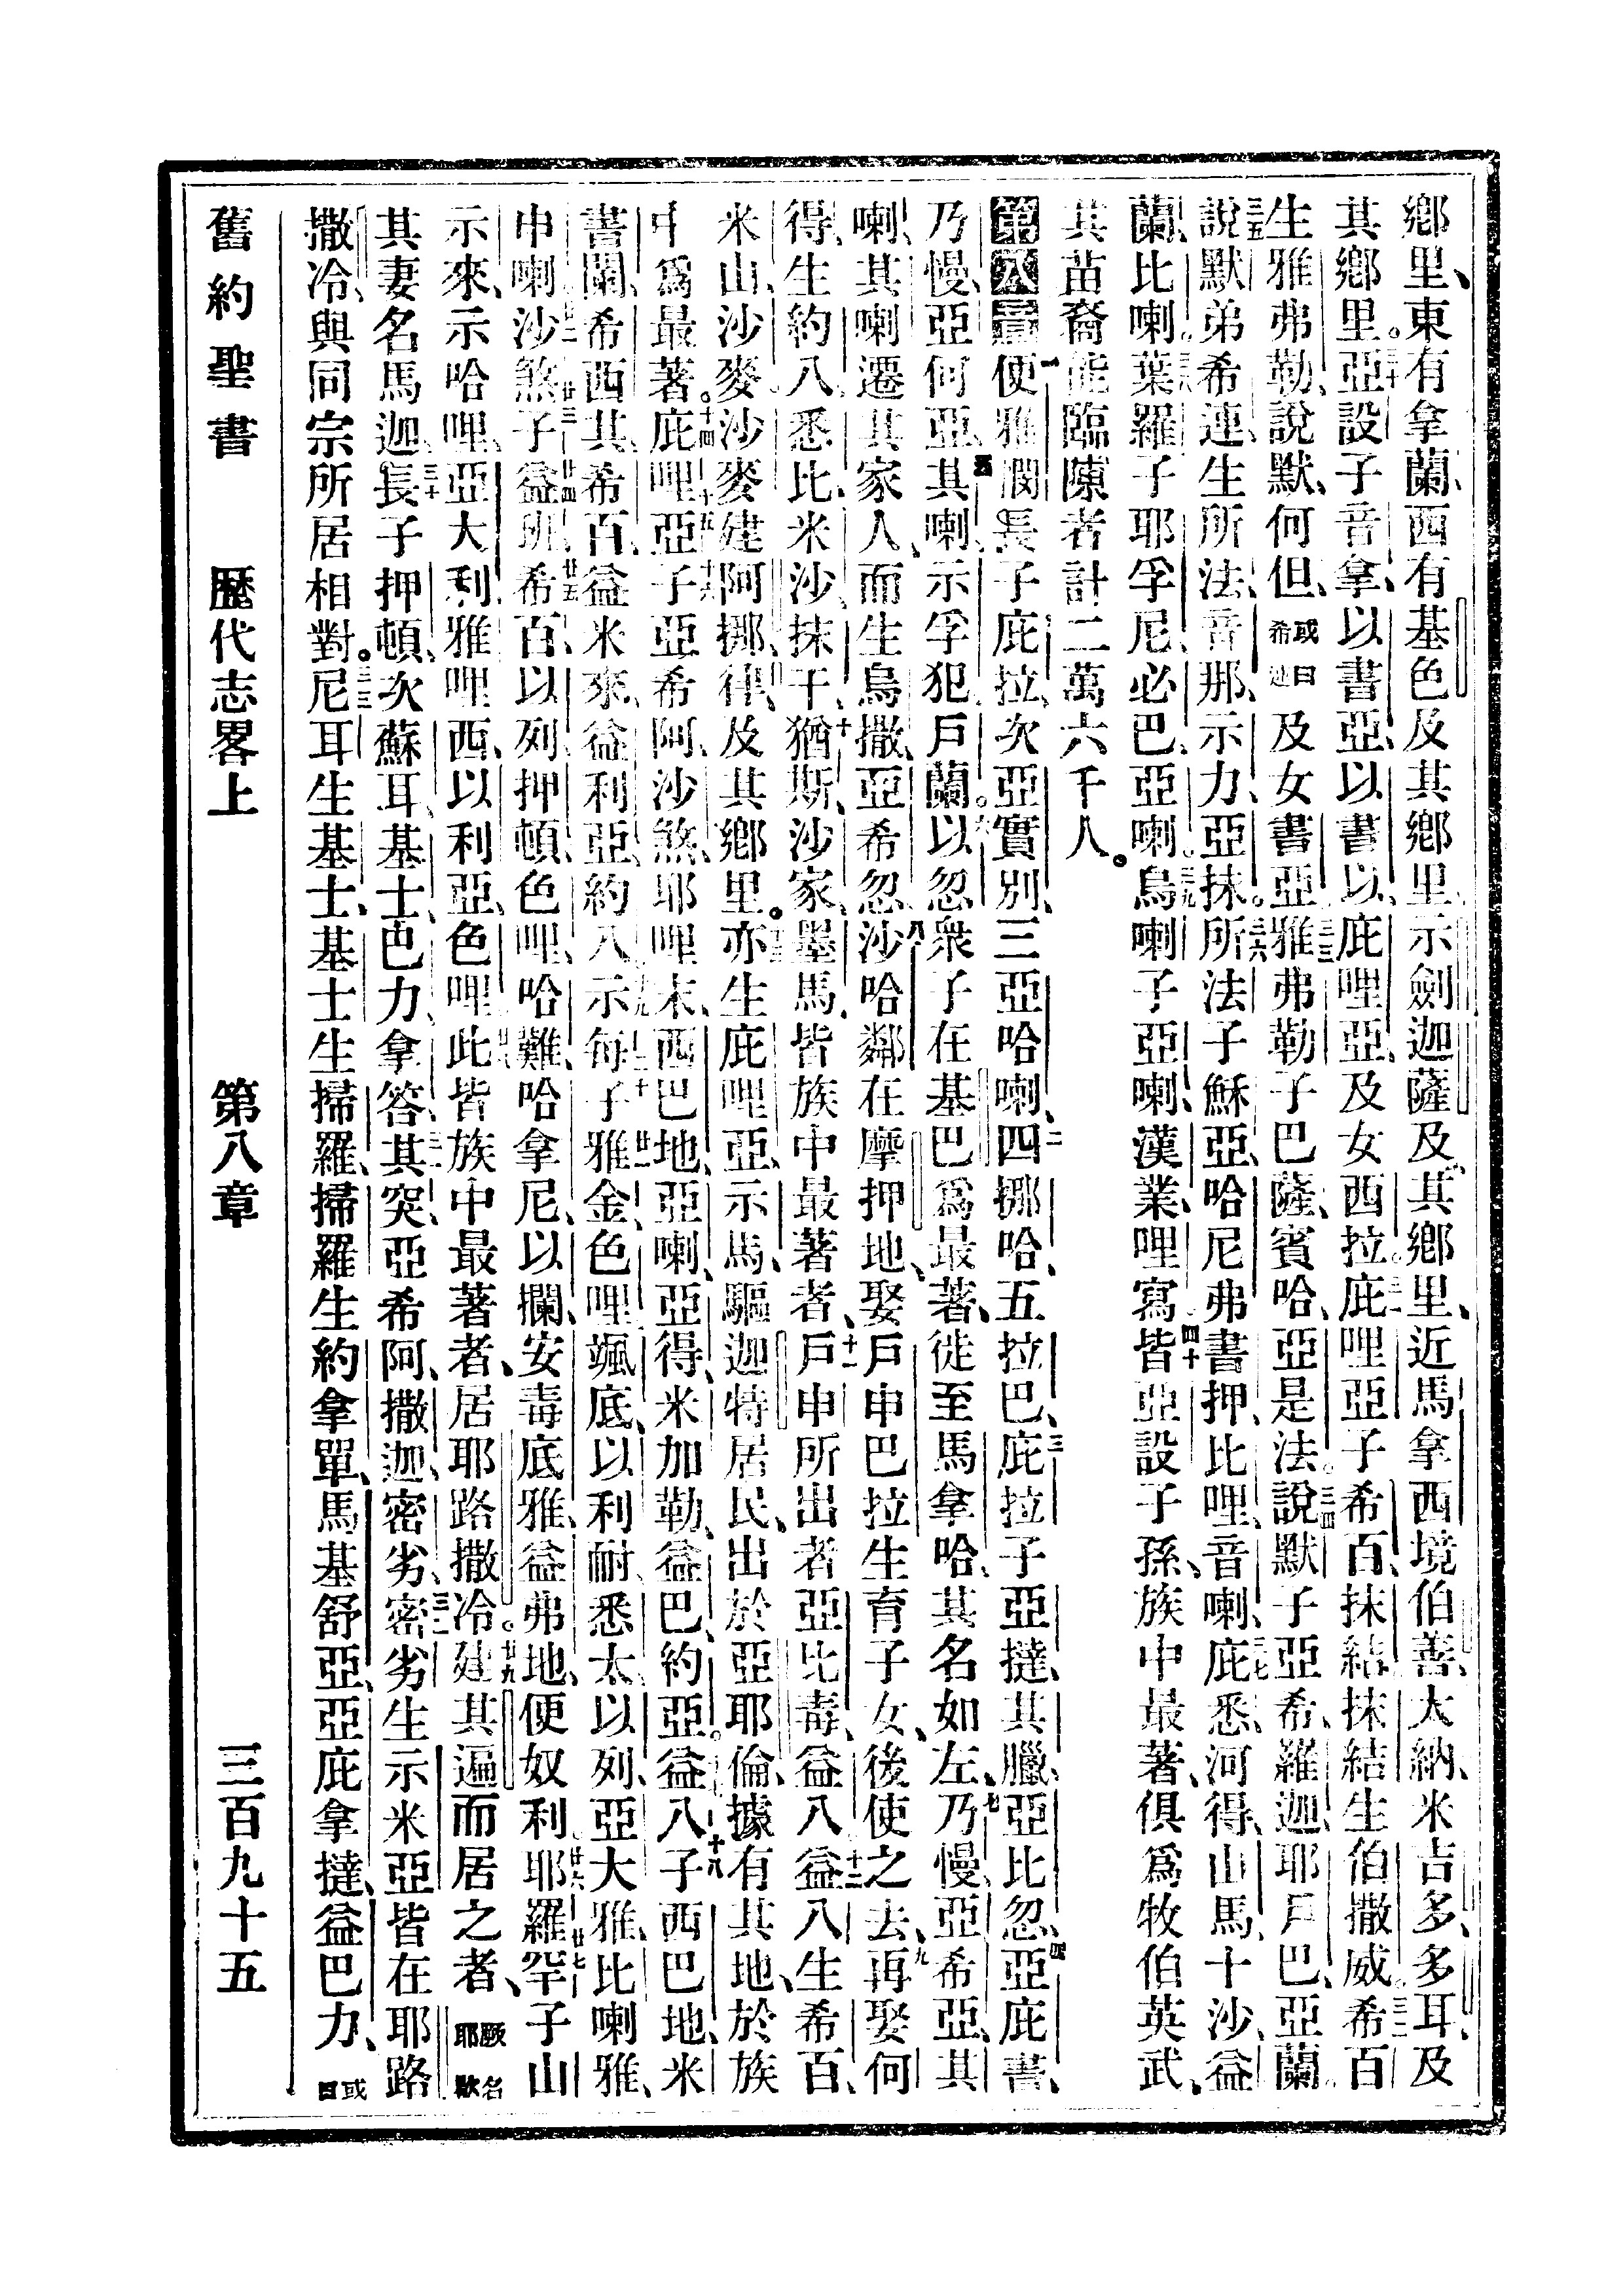 鄉里、東有拿蘭、西有基色及其鄉里、示劍迦薩及其鄉里、近馬拿西境伯善、大納、米吉多、多耳、及
其鄉里。三十亞設子音拿、以書亞、以書以、庇哩亞、及女西拉。三一庇哩亞子希百、抹結、抹結生伯撒威。三二希百
生雅弗勒、說默、何但、或曰希連及女書亞。三三雅弗勒子巴薩、賓哈、亞是法。三四說默子亞希、羅迦、耶戶巴、亞蘭。
三五說默弟希連、生所法、音那、示力、亞抹。三六所法子穌亞、哈尼弗、書押、比哩、音喇、三七庇悉、河得、山馬、十沙、益
蘭、比喇。三八葉羅子耶孚尼、必巴、亞喇。三九烏喇子亞喇、漢業、哩寫。四十皆亞設子孫、族中最著、俱爲牧伯英武、
其苗裔能臨陳者計二萬六千人。
第八章一便雅憫長子庇拉、次亞實別、三亞哈喇、二四挪哈、五拉巴、三庇拉子亞撻、其臘、亞比忽、四亞庇書、
乃慢、亞何亞、五其喇、示孚犯、戶蘭。六以忽衆子在基巴爲最著、徙至馬拿哈、其名如左、七乃慢、亞希亞、其
喇、其喇遷其家人、而生烏撒、亞希忽、八沙哈鄰在摩押地、娶戶申巴拉生育子女、後使之去、九再娶何
得、生約八、悉比、米沙、抹干、十猶斯、沙家、墨馬、皆族中最著者、十一戶申所出者亞比毒、益八、十二益八生希百、
米山、沙麥、沙麥建阿挪、律、及其鄉里。十三亦生庇哩亞、示馬、驅迦特居民、出於亞耶倫、據有其地、於族
中爲最著。十四庇哩十五亞子亞十六希阿、沙煞、耶哩末、西巴地、亞喇、亞得、米加勒、益巴、約亞。十七益八子十八西巴地、米
書闌、希西其、希百、益米來、益利亞、約八、十九示每二十子雅金、廿一色哩、颯底、以利耐、悉太、以列、亞大雅、比喇雅、
申喇、廿二沙煞廿三子益廿四班、希廿五百、以列、押頓、色哩、哈難、哈拿尼、以攔、安毒底雅、益弗地、便奴利、廿六耶羅罕廿七子山
示來、示哈哩、亞大利雅、哩西、以利亞、色哩、廿八此皆族中最著者、居耶路撒冷。廿九建其遍而居之者、厥名耶歇
其妻名馬迦、三十長子押頓、次蘇耳、基士、巴力、拿答、三一其突、亞希阿、撒迦、密劣、三二密劣生示米亞、皆在耶路
撒冷、與同宗所居相對。三三尼耳生基士、基士生掃羅、掃羅生約拿單、馬基舒亞、亞庇拿撻、益巴力、或曰
舊約聖書 歷代志畧上 第八章 三百九十五